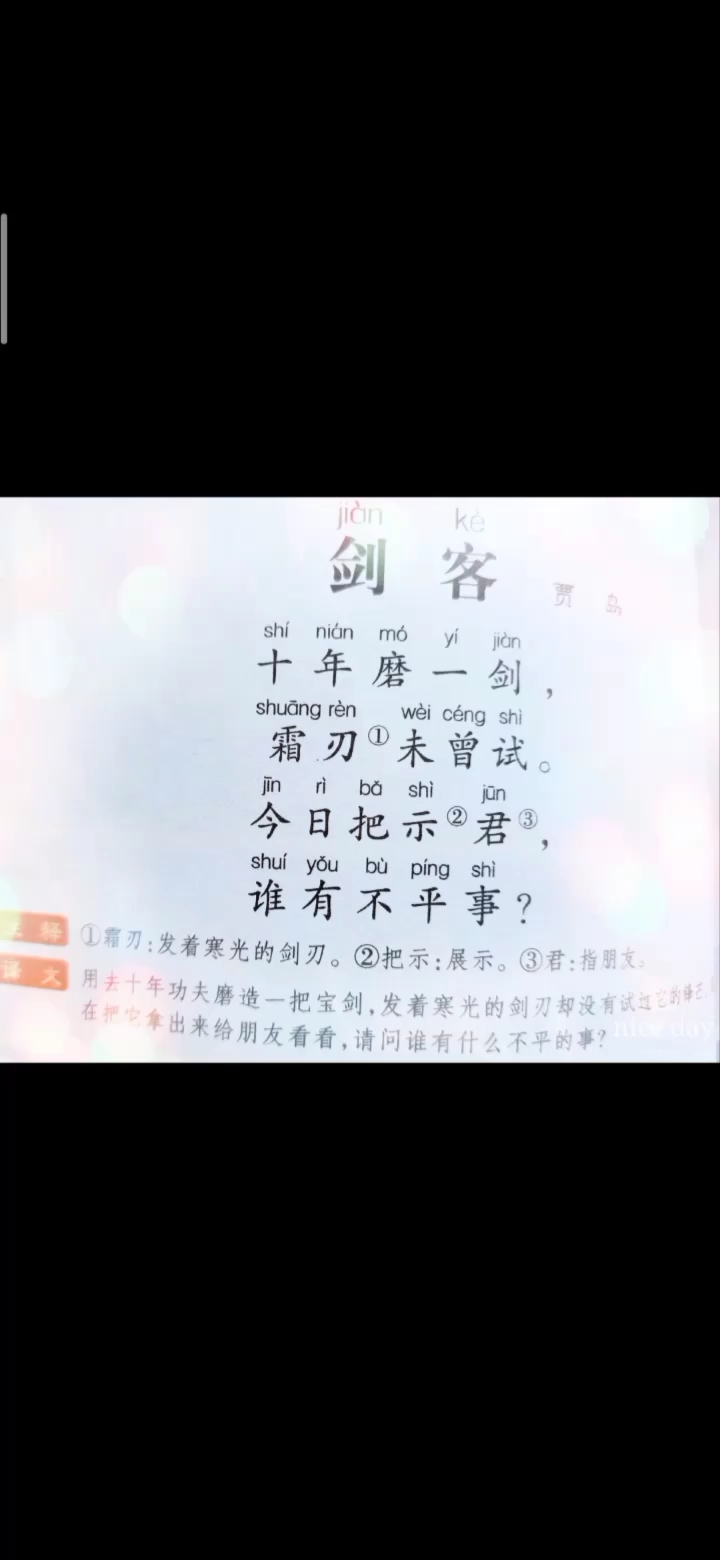 jiàn kè
剑客
贾岛
shí nián mó yí jiàn
十年磨一剑，
shuāng rèn wèi céng shì
霜刃①未曾试。
jīn rì bǎ shì jūn
今日把示②君③，
shuí yǒu bù píng shì
谁有不平事？
注释 ①霜刃：发着寒光的剑刃。②把示：展示。③君：指朋友。
译文 用去十年功夫磨造一把宝剑，发着寒光的剑刃却没有试过它的锋芒。
在把它拿出来给朋友看看，请问谁有什么不平的事？
nice day